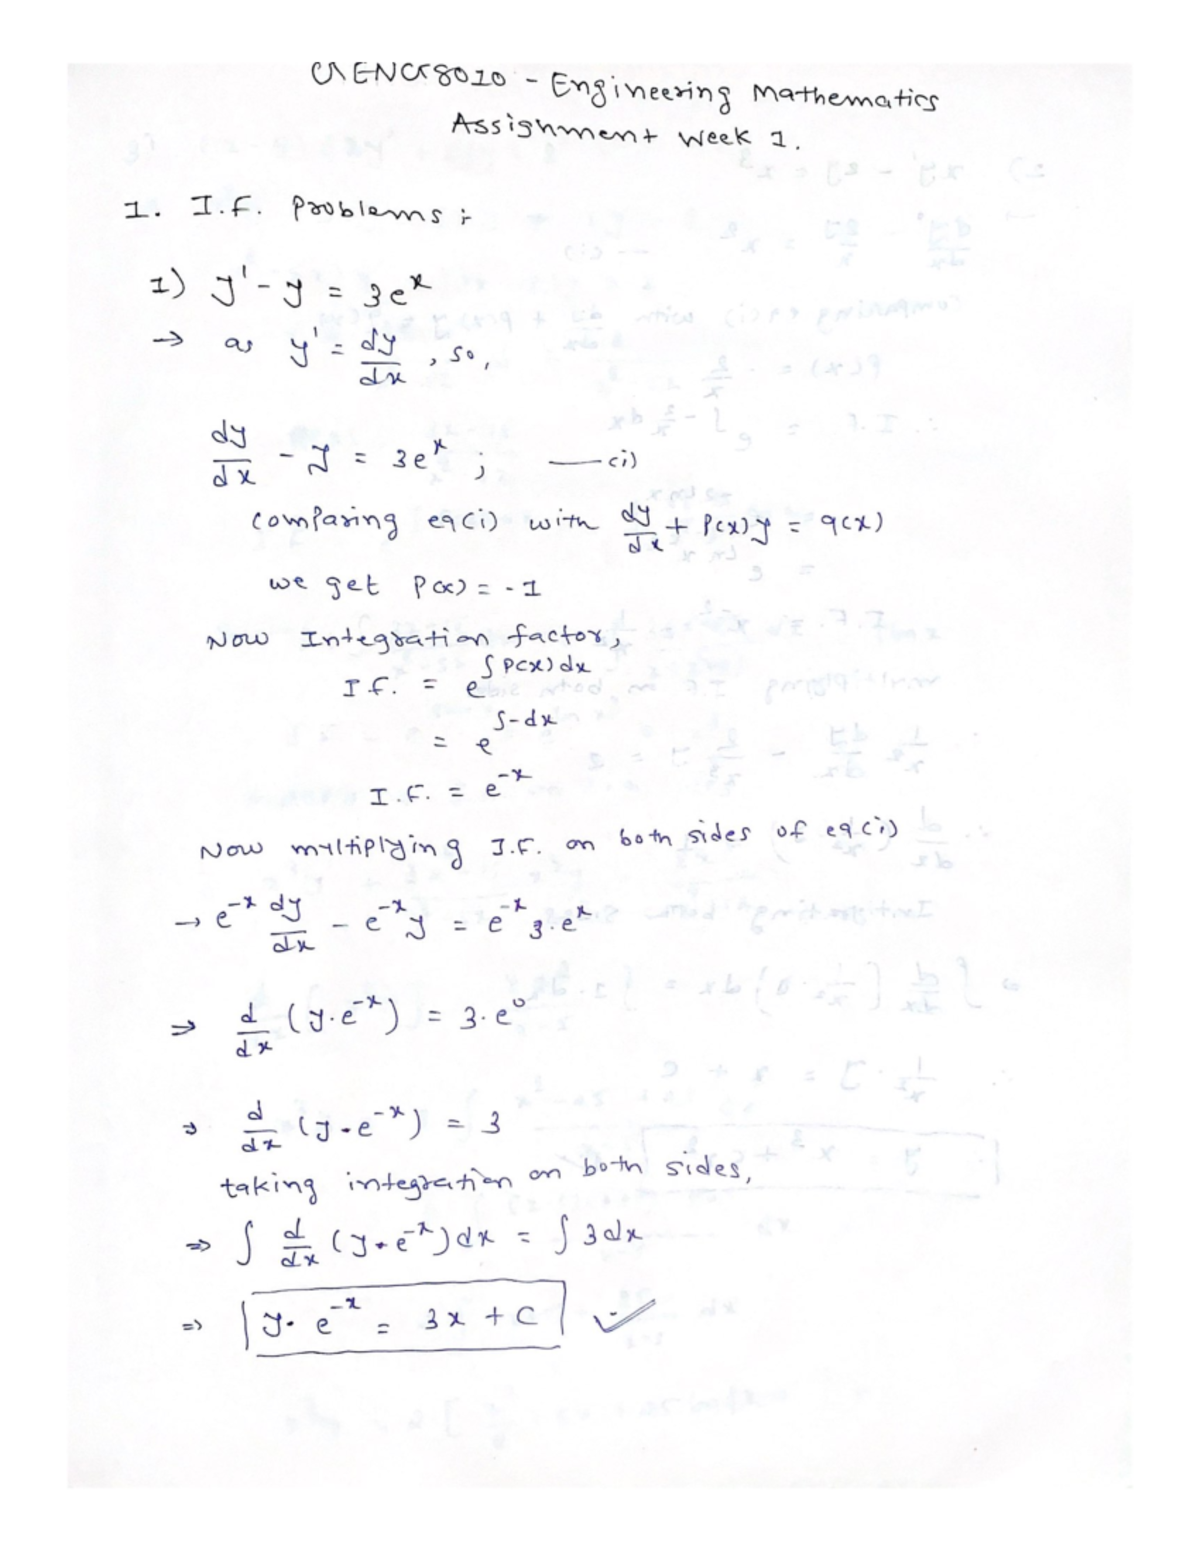 GENG8010 - Engineering Mathematics
Assignment Week 1.
1. I.F. Problems :-
1) y' - y = 3e^x
→ as y' = dy/dx , so,
dy/dx - y = 3e^x ; —(i)
Comparing eq(i) with dy/dx + P(x)y = q(x)
we get P(x) = -1
Now Integration factor,
I.F. = e^∫P(x)dx
= e^∫-dx
I.F. = e^-x
Now multiplying I.F. on both sides of eq(i)
→ e^-x dy/dx - e^-x y = e^-x 3.e^x
⇒ d/dx (y.e^-x) = 3.e^0
⇒ d/dx (y.e^-x) = 3
taking integration on both sides,
⇒ ∫ d/dx (y.e^-x) dx = ∫ 3dx
⇒ y. e^-x = 3x + C